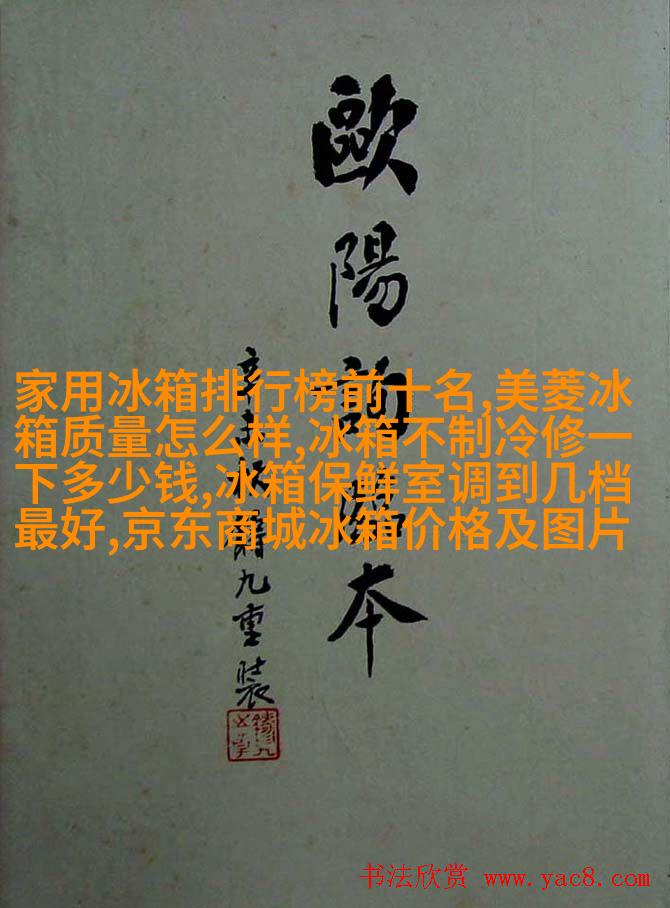 歐陽詢
本
九重裝
家用冰箱排行榜前十名,美菱冰
箱质量怎么样,冰箱不制冷修一
下多少钱,冰箱保鲜室调到几档
最好,京东商城冰箱价格及图片
书法欣赏 www.yac8.com